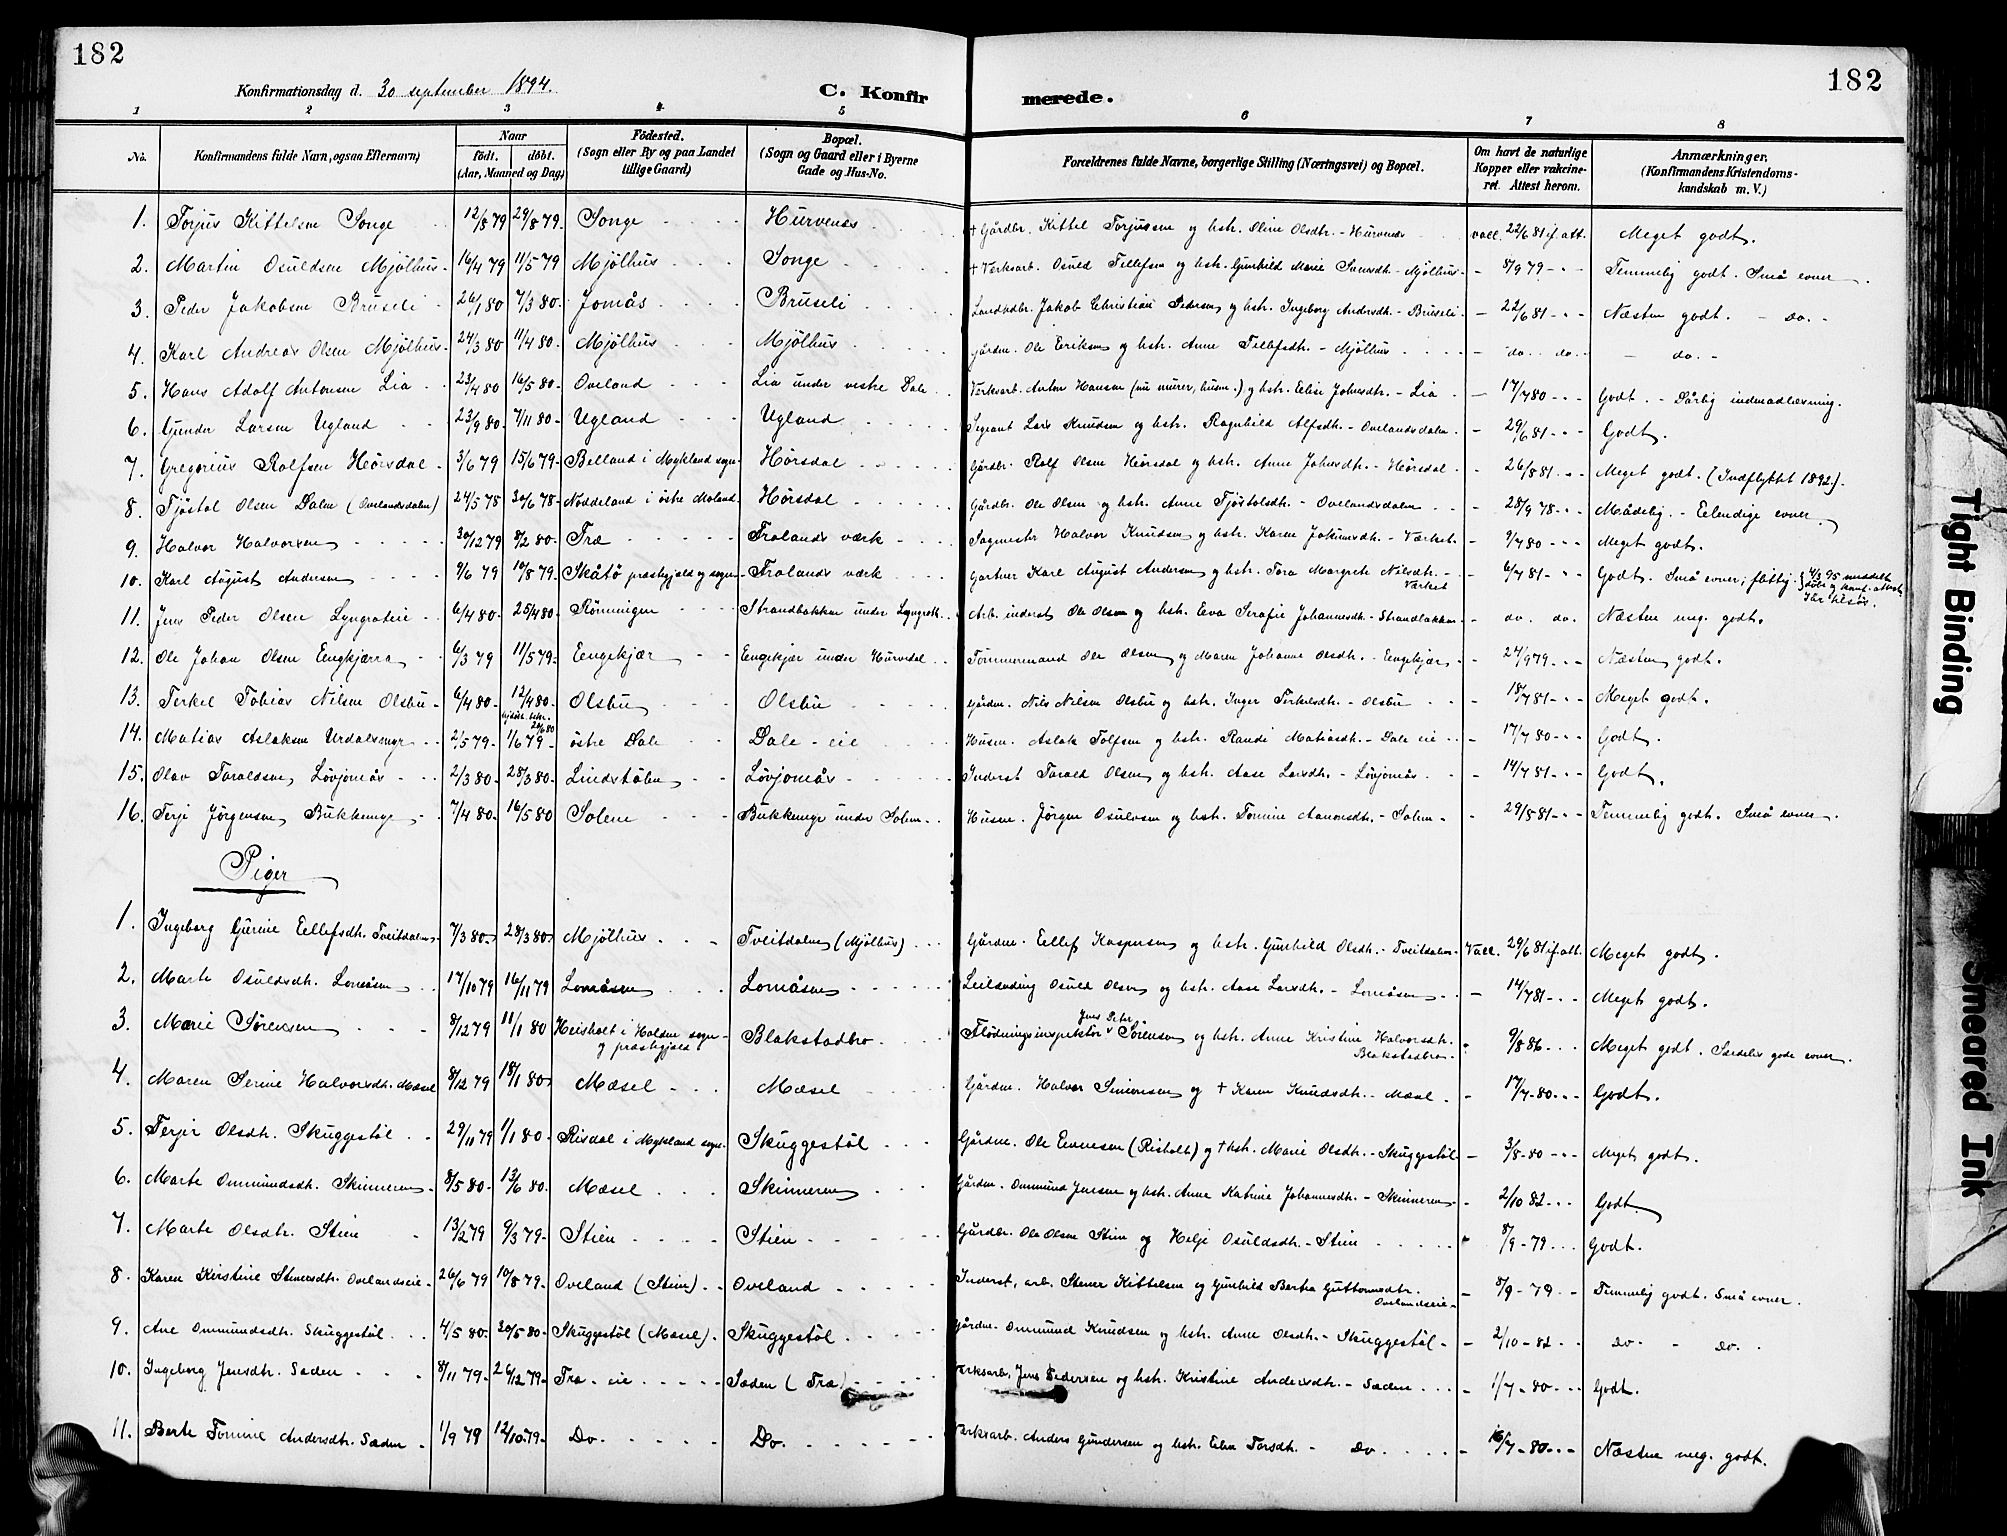 182
182
Konfirmationsdag d. 30 september 1894.
C. Konfir merede.
1 2 3 4 5 6 7 8
No. Konfirmandens fulde Navn, ogsaa Efternavn) Naar født. døbt. (Aar, Maaned og Dag) Fødested. (Sogn eller By og paa Landet tillige Gaard) Bopæl. (Sogn og Gaard eller i Byerne Gade og Hus-No. Forældrenes fulde Navne, borgerlige Stilling (Næringsvei) og Bopæl. Om havt de naturlige Kopper eller vakcineret. Attest herom. Anmærkninger. (Konfirmandens Kristendomskundskab m. V.)
1. Torjus Kittelsen Songe 12/8 79 29/8 79. Songe Hurvenes + Gårdbr. Kittel Torjussen og hstr. Oline Olsdtr. - Hurvenes vacc. 22/6 81 if. att. Meget godt.
2. Martin Osuldsen Mjølhus 16/4 79 11/5 79 Mjølhus Songe + Værksarb. Osuld Tellefsen og hstr. Gunhild Marie - Mjølhus - 8/9 79 - " - Temmelig godt. Små evner.
3. Peder Jakobsen Bruseli 26/1 80 7/3 80. Jomås Bruseli Landhdlr. Jakob Christian Pedersen og hstr. Ingeborg Andersdtr. - Bruseli - 22/6 81 - " - Næsten godt. - do. -
4. Karl Andreas Olsen Mjølhus 24/3 80 11/4 80. Mjølhus Mjølhus Gårdm. Ole Eriksen og hstr. Anne Tellefsdtr. - Mjølhus - do. do. - do. -
5. Hans Adolf Antonsen Lia 23/4 80 16/5 80. Oveland Lia under vestre Dale Værksarb. Anton Hansen (nu murer, husm.) og hstr. Elise Johnsdtr. - Lia - 17/7 80 - - Godt. - Dårlig indenadlæsning.
6. Gunder Larsen Ugland 23/9 80. 7/11 80. Ugland Ugland Sergeant Lars Knudsen og hstr. Ragnhild Alfsdtr. - Ovelandsdalen. - 29/6 81 - " - Godt.
7. Gregorius Rolfsen Hørsdal 3/6 79 15/6 79. Belland i Mykland sogn Hørsdal Gårdbr. Rolf Olsen Hørsdal og hstr. Anne Johnsdtr. - Hørsdal - 26/8 81 - Meget godt. (Indflyttet 1892).
8. Tjøstol Olsen Dalen (Ovelandsdalen) 24/5 78 30/6 78. Noddeland i østre Moland Hørsdal Gårdbr. Ole Olsen og hstr. Anne Tjøstolsdtr. - Ovelandsdalen - 28/9 78 - - Mådelig. - Elendige evner.
9. Halvor Halvorsen 30/12 79 8/2 80. Træ Frolands værk Sagmester Halvor Knudsen og hstr. Karen Jokumsdtr. - Værket - 9/7 80 - - - Meget godt.
10. Karl August Andersen 9/6 79 10/8 79. Skåtø præstegjeld og sogn Frolands værk Gartner Karl August Andersen og hstr. Tora Margrete Nilsdtr. - Værket - 6/7 81 - - Godt. Små evner; flittig. 4/3 95 meddelt døbe og konf. attest
11. Jens Peder Olsen Lyngroteie 6/4 80. 25/4 80. Rømningen Strandbakken under Lyngrot Arb. inderst Ole Olsen og hstr. Eva Serafie Johannesdtr. - Strandbakken - do. do. Næsten meg. godt.
12. Ole Johan Olsen Engkjærra 6/3 79 11/5 79. Engekjær Engekjær under Hurvedal Tømmermand Ole Olsen og Maren Johanne Olsdtr. - Engekjær - 24/9 79. - - Næsten godt.
13. Terkel Tobias Nilsen Olsbu 6/4 80. 12/4 80. Olsbu Olsbu Gårdm. Nils Nilsen Olsbu og hstr. Inger Terkelsdtr. - Olsbu - 18/7 81 - - - Meget godt.
14. Matias Aslaksen Urdalsmyr 2/5 79. 1/6 79 østre Dale Dale - eie Husm. Aslak Tolfsen og hstr. Randi Matiasdtr. - Dale eie - 17/7 80 - - Godt.
15. Olav Taraldsen Løvjomås 2/3 80. 28/3 80. Lindstølen Løvjomås Inderst Tarald Olsen og hstr. Aase Larsdtr. - Løvjomås - 14/7 81 - - Godt.
16. Terje Jørgensen Bukkemyr 7/4 80. 16/5 80 Solem Bukkemyr under Solem Husm. Jørgen Osulvsen og hstr. Tomine Aanonsdtr. - Solem - 29/8 81 - - Temmelig godt. Små evner.
Piger
1. Ingeborg Gurine Ellefsdtr. Tveitdalen 7/3 80 28/3 80 Mjølhus Tveitdalen (Mjølhus) Gårdm. Ellef Kaspersen og hstr. Gunhild Olsdtr. - Tveitdalen - Vacc. 29/6 81 if. att. Meget godt.
2. Marte Osuldsdtr. Lomåsen 17/10 79 16/11 79 Lomåsen Lomåsen Leilænding Osuld Olsen og hstr. Aase Larsdtr. - Lomåsen - 14/7 81 - - - Meget godt.
3. Marie Sørensen 8/12 79 11/1 80 Heisholt i Holden sogn og præstegjæld Blakstadbro Flødningsinspektør Jens Peter Sørensen og hstr. Anne Kristine Halvorsdtr. Blakstadbro - 9/8 86 - - - Meget godt. Særdeles gode evner.
4. Maren Serine Halvorsdtr. Mæsel 8/12 79 18/1 80 Mæsel Mæsel Gårdm. Halvor Simonsen og + Karen Knudsdtr. - Mæsel - 17/7 80 - - Godt.
5. Terjer Olsdtr. Skuggestøl 29/11 79 1/1 80. Risdal i Mykland sogn Skuggestøl Gårdm. Ole Evensen (Risholt) og + hstr. Marie Olsdtr. - Skuggestøl - 3/8 - 80 - - Meget godt.
6. Marte Ommundsdtr. Skinneren 8/5 80 13/6 80. Mæsel Skinneren Gårdm. Ommund Jensen og hstr. Anne Katrine Johannesdtr. - Skinneren - 2/10 82 - - Godt.
7. Marte Olsdtr. Stien 13/2 79 9/3 79. Stien Stien Gårdbr. Ole Olsen Stien og Helje Osuldsdtr. - Stien 8/9 - 79 - - Godt.
8. Karen Kirstine Stenersdtr. Ovelandseie 26/6 79 10/8 79. Oveland (Stien) Oveland Inderst, arb. Stener Kittelsen og Gunhild Bertea Guttormsdtr. Ovelandseie - 8/9 - 79 - - Temmelig godt. Små evner.
9. Ane Ommundsdtr. Skuggestøl 4/5 80. 20/5 80. Skuggestøl (Mæsel) Skuggestøl Gårdm. Ommund Knudsen og hstr. Anne Olsdtr. - Skuggestøl - 2/10 - 82 - - do - do.
10. Ingeborg Jensdtr. Sæden 8/11 79. 26/12 79. Træ - eie Sæden (Træ) Værksarb. Jens Pedersen og hstr. Kristine Andersdtr. - Sæden - 1/7 - 80 - - Godt.
11. Berte Tomine Andersdtr. Sæden 1/9 79 12/10 79. Do. Do. Værksarb. Anders Gundersen og hstr. Elen Torsdtr. - Do - 16/7 - 80 - - Næsten meg. godt.
Tight Binding
Smeared Ink